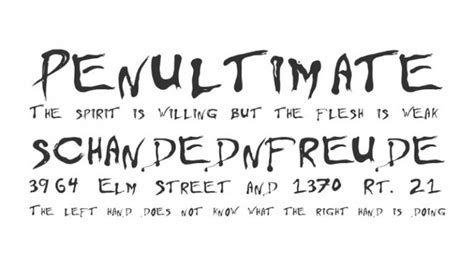 PENULTIMATE
THE SPIRIT IS WILLING BUT THE FLESH IS WEAK
SCHANDEDNFREUDE
3964 ELM STREET AND 1370 RT. 21
THE LEFT HAND DOES NOT KNOW WHAT THE RIGHT HAND IS DOING